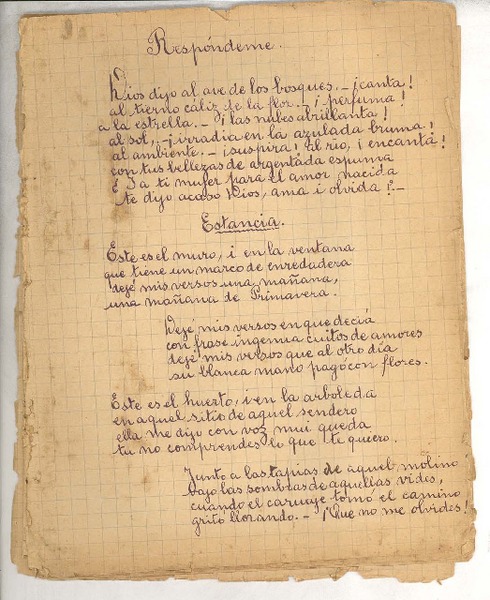 Respóndeme.
Dios dijo al ave de los bosques. - ¡canta!
al tierno cáliz de la flor. - ¡perfuma!
a la estrella. - ¡las nubes abrillanta!
al sol, - ¡irradia en la azulada bruma!
al ambiente. - ¡suspira! al rio, ¡encanta!
con tus bellezas de argentada espuma
É ¿a ti mujer para el amor nacida
te dijo acaso Dios, ama i olvida?_
Estancia.
Este es el muro, i en la ventana
que tiene un marco de enredadera
dejé mis versos una mañana,
una mañana de Primavera.
Dejé mis versos en que decia
con frase ingenua cuitos de amores
dejé mis versos que al otro día
su blanca mano pagó con flores.
Este es el huerto, i en la arboleda
en aquel sitio de aquel sendero
ella me dijo con voz mui queda
tu no comprendes lo que te quiero.
Junto a las tapias de aquel molino
bajo las sombras de aquellas vides,
cuando el carruaje tomó el camino
gritó llorando. - ¡Que no me olvides!